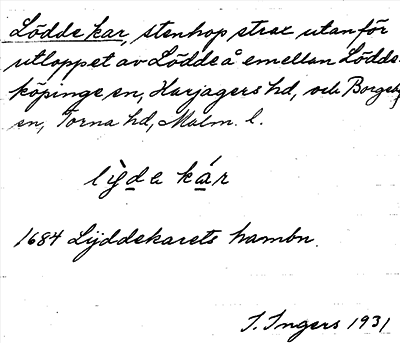 Lödde kar, stenhop strax utanför
utloppet av Lödde å emellan Lödde-
köpinge sn, Harjagers hd, och Borgeby
sn, Torna hd, Malm. l.
lỳde kár
1684 Lÿddekarets hambn.
I. Ingers 1931